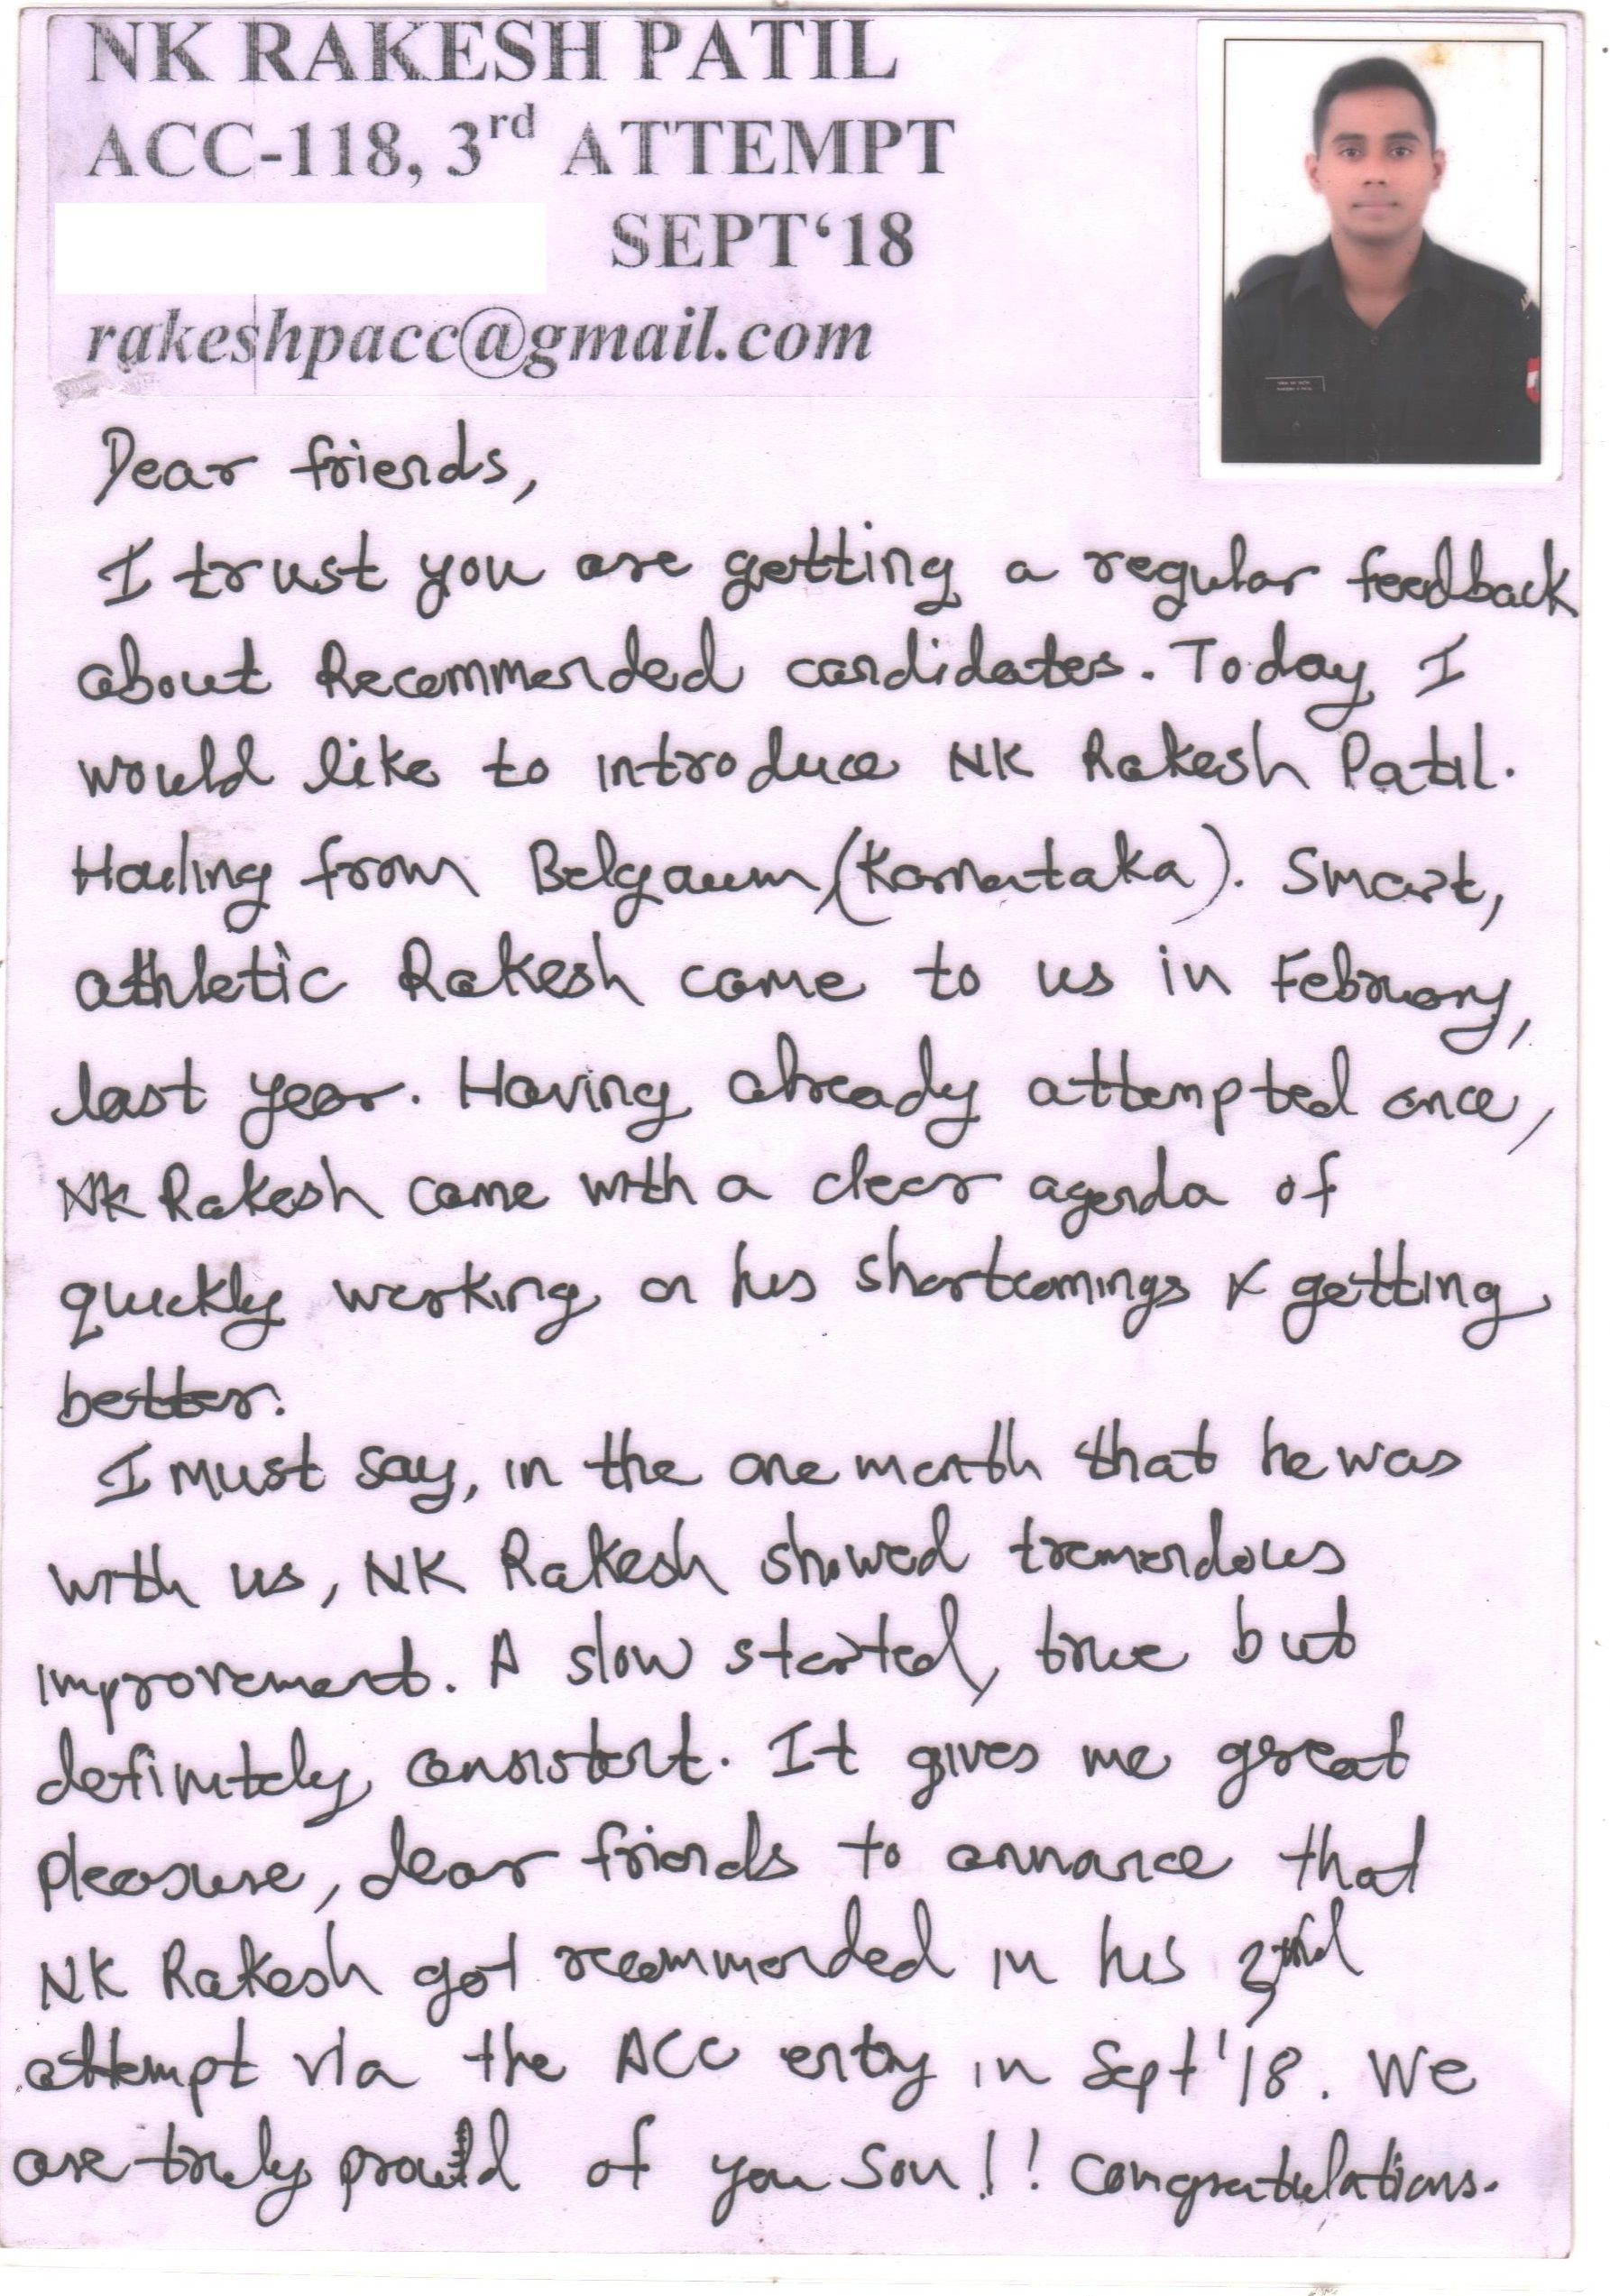 NK RAKESH PATIL
ACC-118, 3rd ATTEMPT
SEPT‘18
rakeshpacc@gmail.com
Dear friends,
I trust you are getting a regular feedback
about Recommended candidates. Today I
would like to introduce NK Rakesh Patil.
Hailing from Belgaum, (Karnataka). Smart,
athletic Rakesh came to us in February,
last year. Having already attempted once,
NK Rakesh came with a clear agenda of
quickly working on his shortcomings & getting
better.
I must say, in the one month that he was
with us, NK Rakesh showed tremendous
improvement. A slow started, true but
definitely consistent. It gives me great
pleasure, dear friends to annance that
NK Rakesh got recommended in his
attempt via the ACC entry in Sept '18. We
are truly proud of you son!! Congratulations.